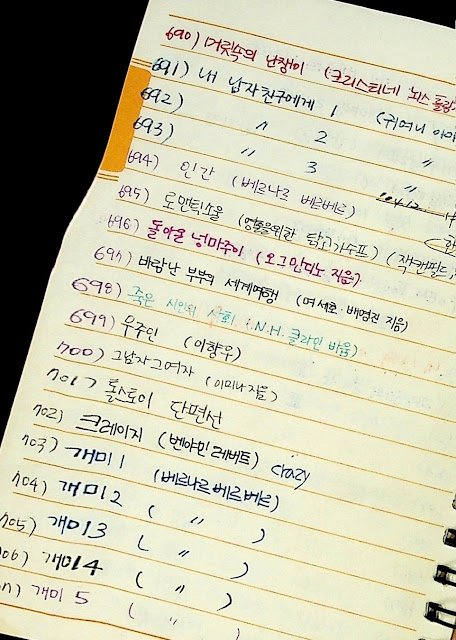 690) 머릿속의 난쟁이 (크리스티네 뇌스틀링
691) 내 남자친구에게 1 (귀여니 이야
692) 〃 2 〃
693) 〃 3 〃
694) 인간 (베르나르 베르베르)
695) 로맨틱소울 (영혼을위한 닭고기수프) (잭캔필드,
696) 돌아온 넝마주이 (오그만디노 지음)
697) 바람난 부부의 세계여행 (여세호·배영진 지음)
698) 죽은 시인의 사회 (N.H. 클라인바움)
699) 우주인 (이향우)
700) 그남자그여자 (이미나지음)
701) 톨스토이 단편선
702) 크레이지 (벤야민 레버트) crazy
703) 개미 1 (베르나르베르베르)
704) 개미 2 ( 〃 )
705) 개미 3 ( 〃 )
06) 개미 4 ( 〃 )
개미 5 ( 〃